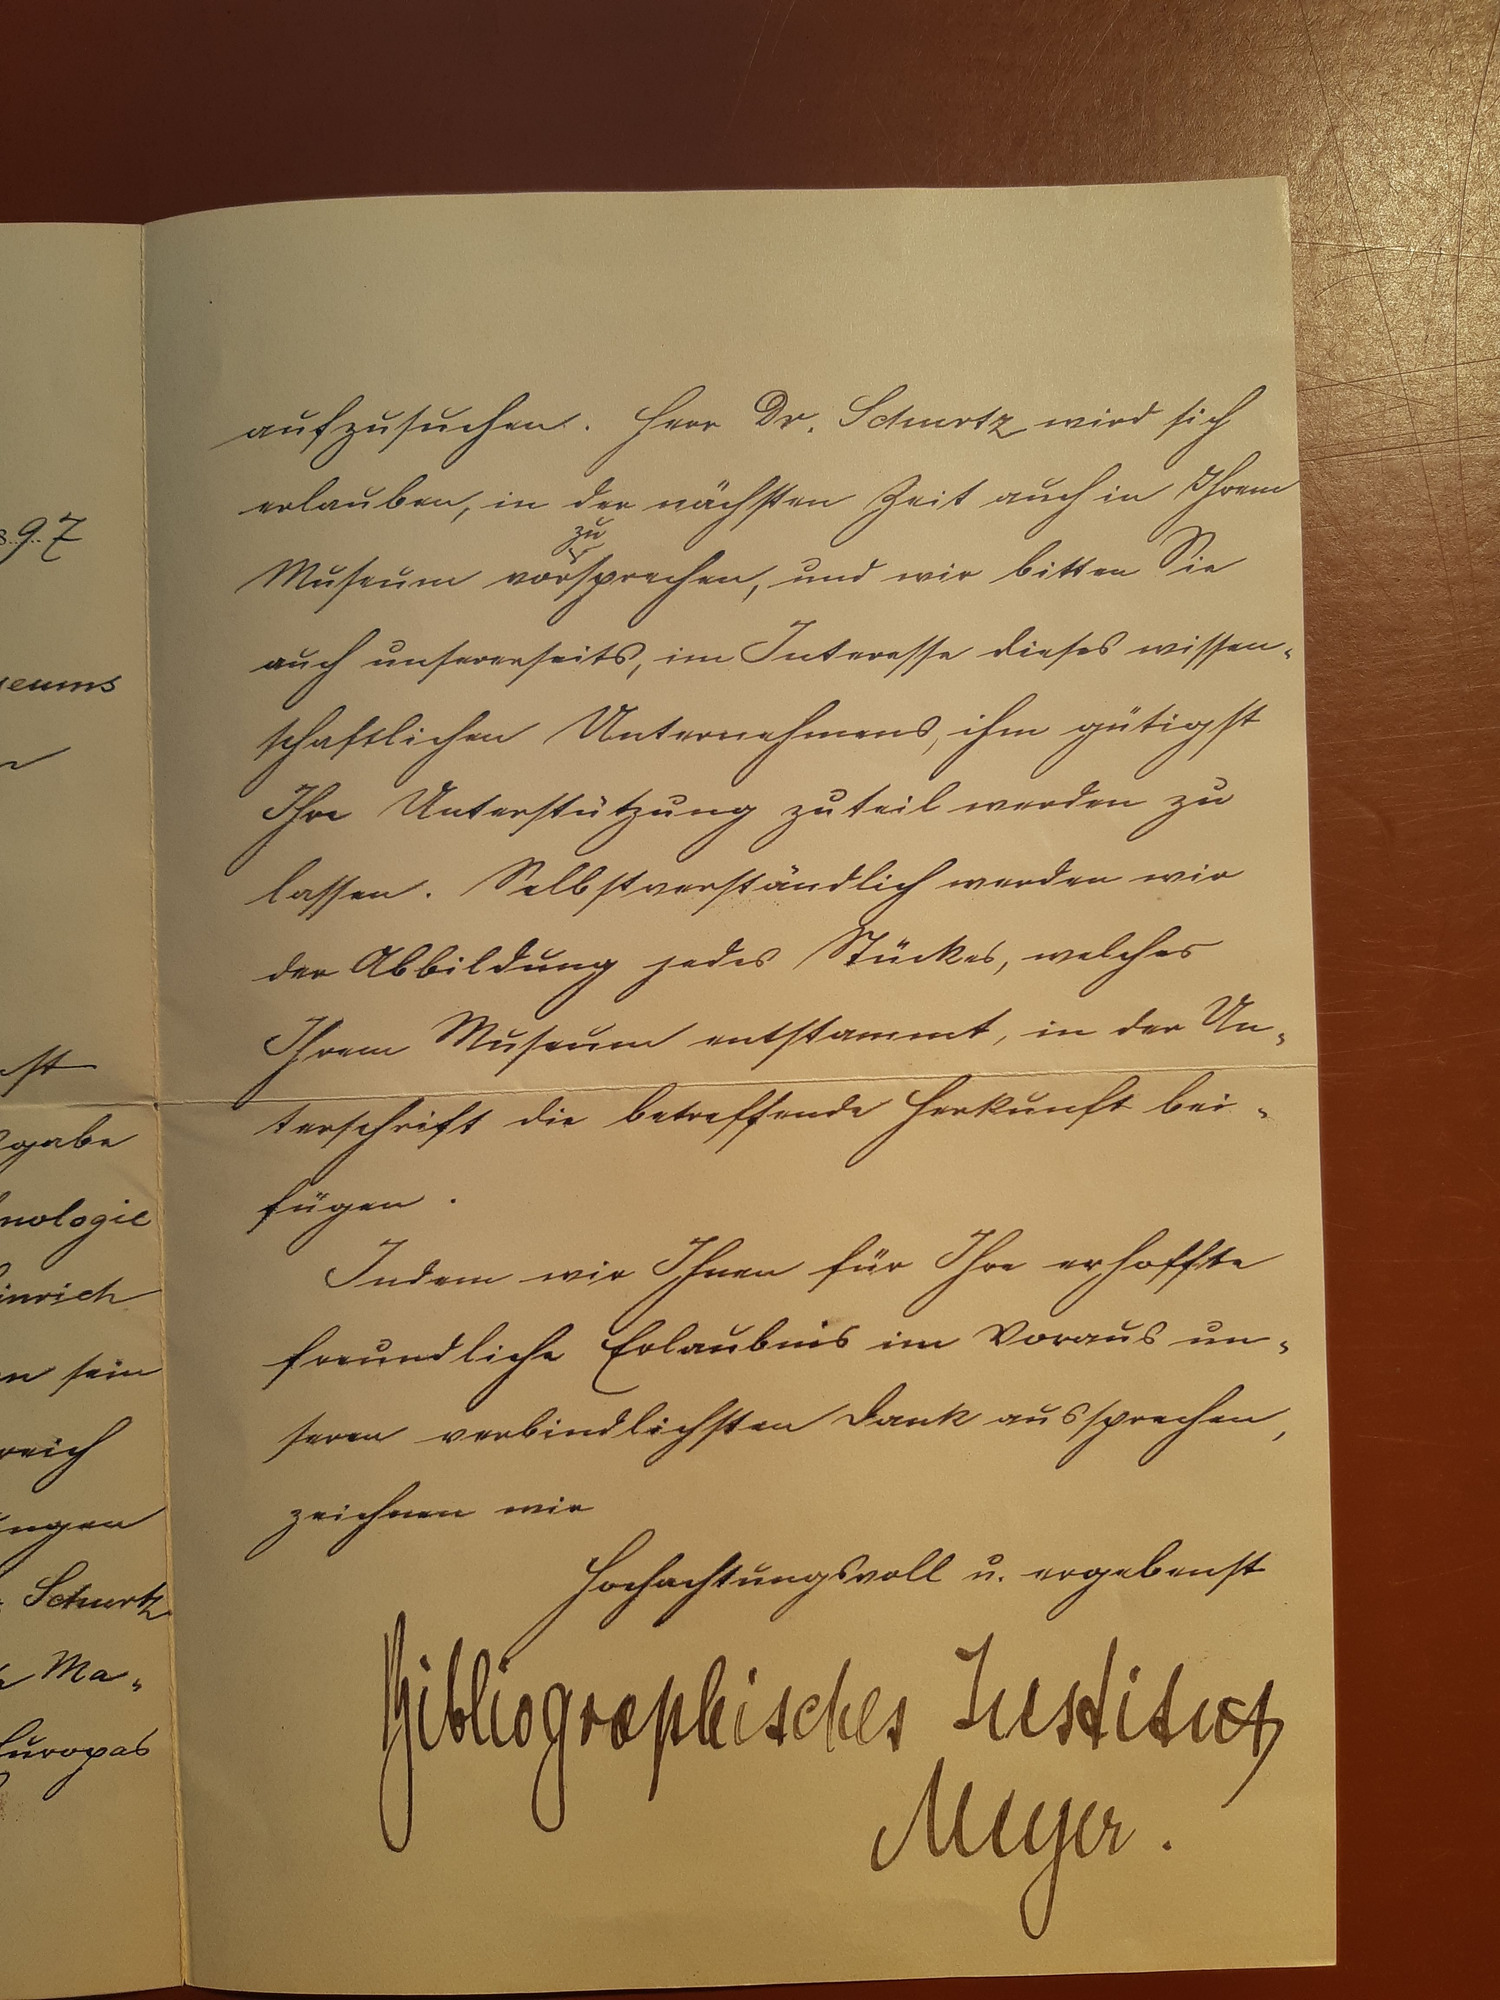 897
seums
st
gabe
nologie
inrich
en sein
reich
ungen
Schurtz
Ma-
Europas
aufzusuchen. Herr Dr. Schurtz wird sich
erlauben, in der nächsten Zeit auch in Ihrem
zu
Museum vorsprechen, und wir bitten Sie
auch unsererseits, im Interesse dieses wissen-
schaftlichen Unternehmens, ihm gütigst
Ihre Unterstützung zuteil werden zu
lassen. Selbstverständlich werden wir
der Abbildung jedes Stückes, welches
Ihrem Museum entstammt, in der Un-
terschrift die betreffende Herkunft bei-
fügen.
Indem wir Ihnen für Ihre erhoffte
freundliche Erlaubnis im Voraus un-
seren verbindlichsten Dank aussprechen,
zeichnen wir
Hochachtungsvoll u. ergebenst
Bibliographisches Institut
Meyer.